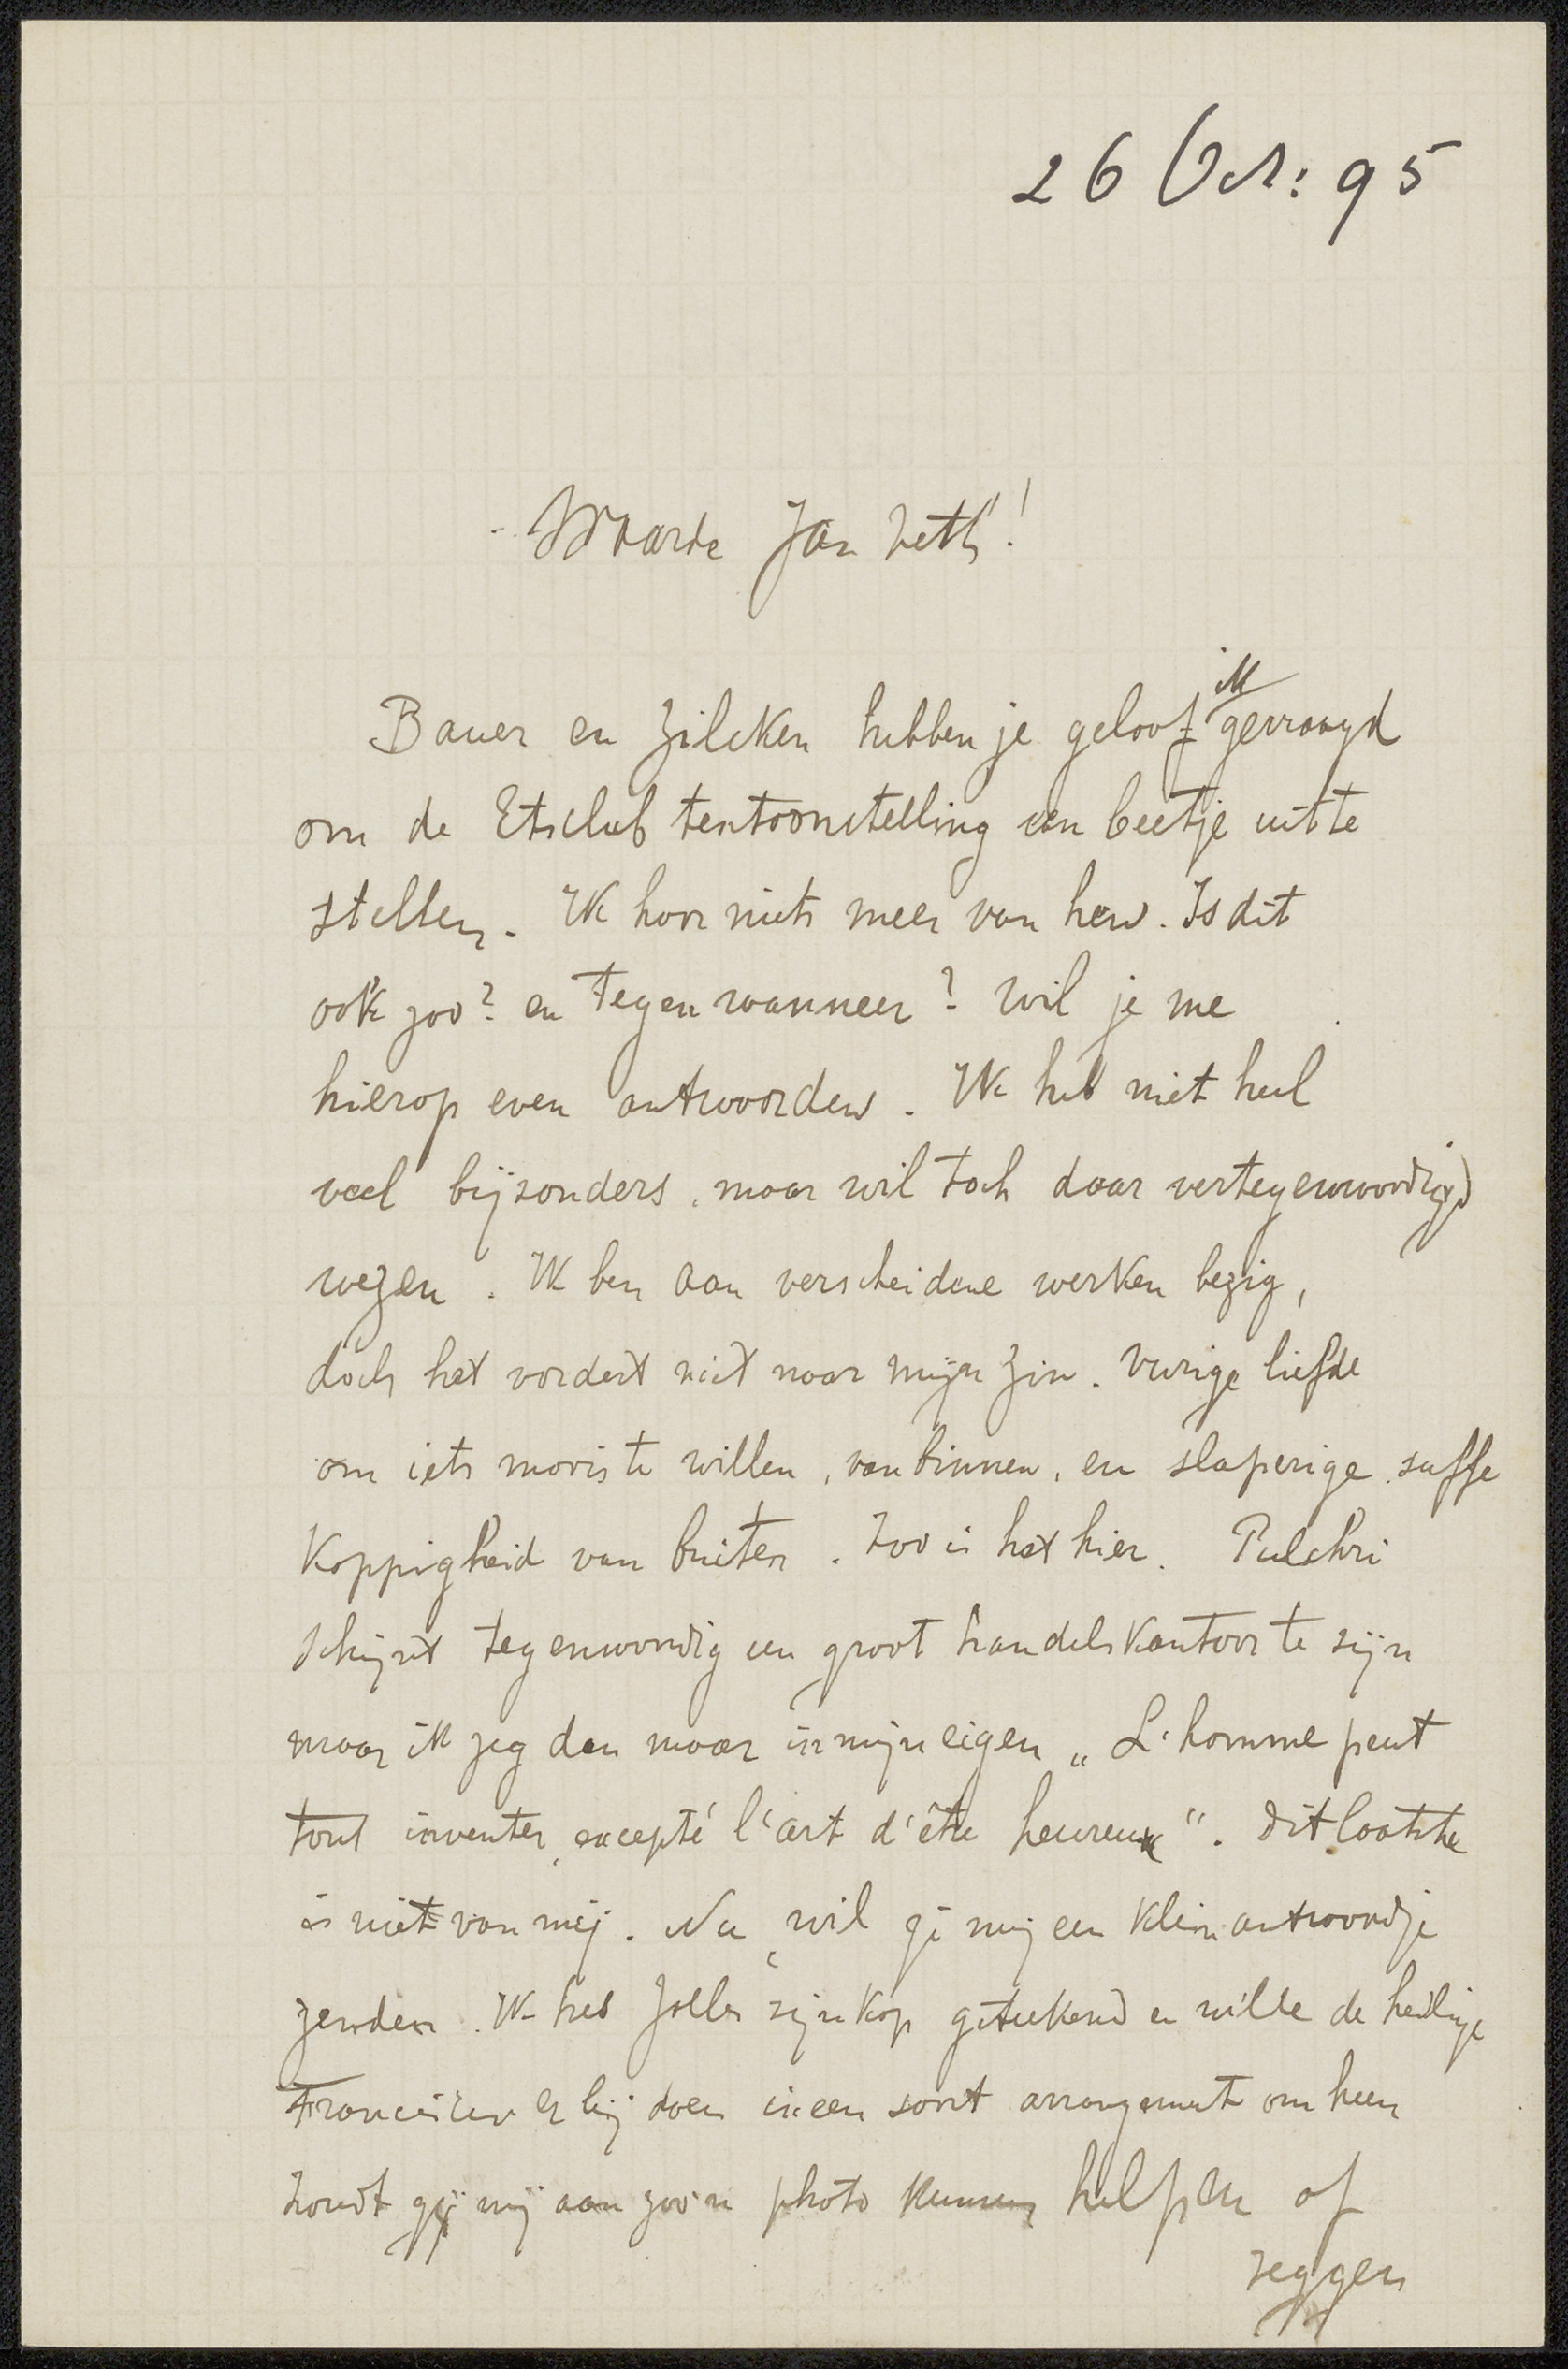 26 Oct: 95
Waarde Jan Veth!
Bauer en Zilcken hebben je geloof ik gevraagd
om de Etsclub tentoonstelling een beetje uit te
stellen. Ik hoor niets meer van hen. Is dit
ook zoo? en tegen wanneer? Wil je me
hierop even antwoorden. Ik heb niet heel
veel bijzonders, maar wil toch daar vertegenwoordigd
wezen. Ik ben aan verscheidene werken bezig,
doch het vordert niet naar mijn zin. Vurige liefde
om iets moois te willen, van binnen, en slaperige suffe
koppigheid van buiten. Zoo is het hier. Pulchri
schijnt tegenwoordig een groot handelskantoor te zijn
maar ik zeg dan maar in mijn eigen „L'homme peut
tout inventer, excepté l'art d'être heureux". Dit laatste
is niet van mij. Nu, wil gi mij een klein antwoordje
zenden. Ik heb Jolles zijn kop geteekend en wilde de heilige
Franciscus er bij doen in een soort arrangement om heen
zoudt gij mij aan zoo'n photo kunnen helpen of
zeggen